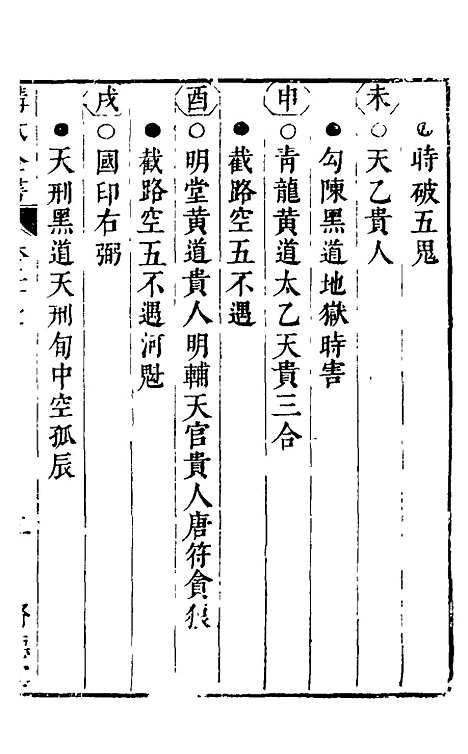 時破五鬼
未
○天乙貴人
●勾陳黑道地獄時害
申
○青龍黃道太乙天貴三合
●截路空五不遇
酉
○明堂黃道貴人明輔天官貴人唐符貪狼
●截路空五不遇河魁
戌
○國印右弼
●天刑黑道天刑旬中空孤辰